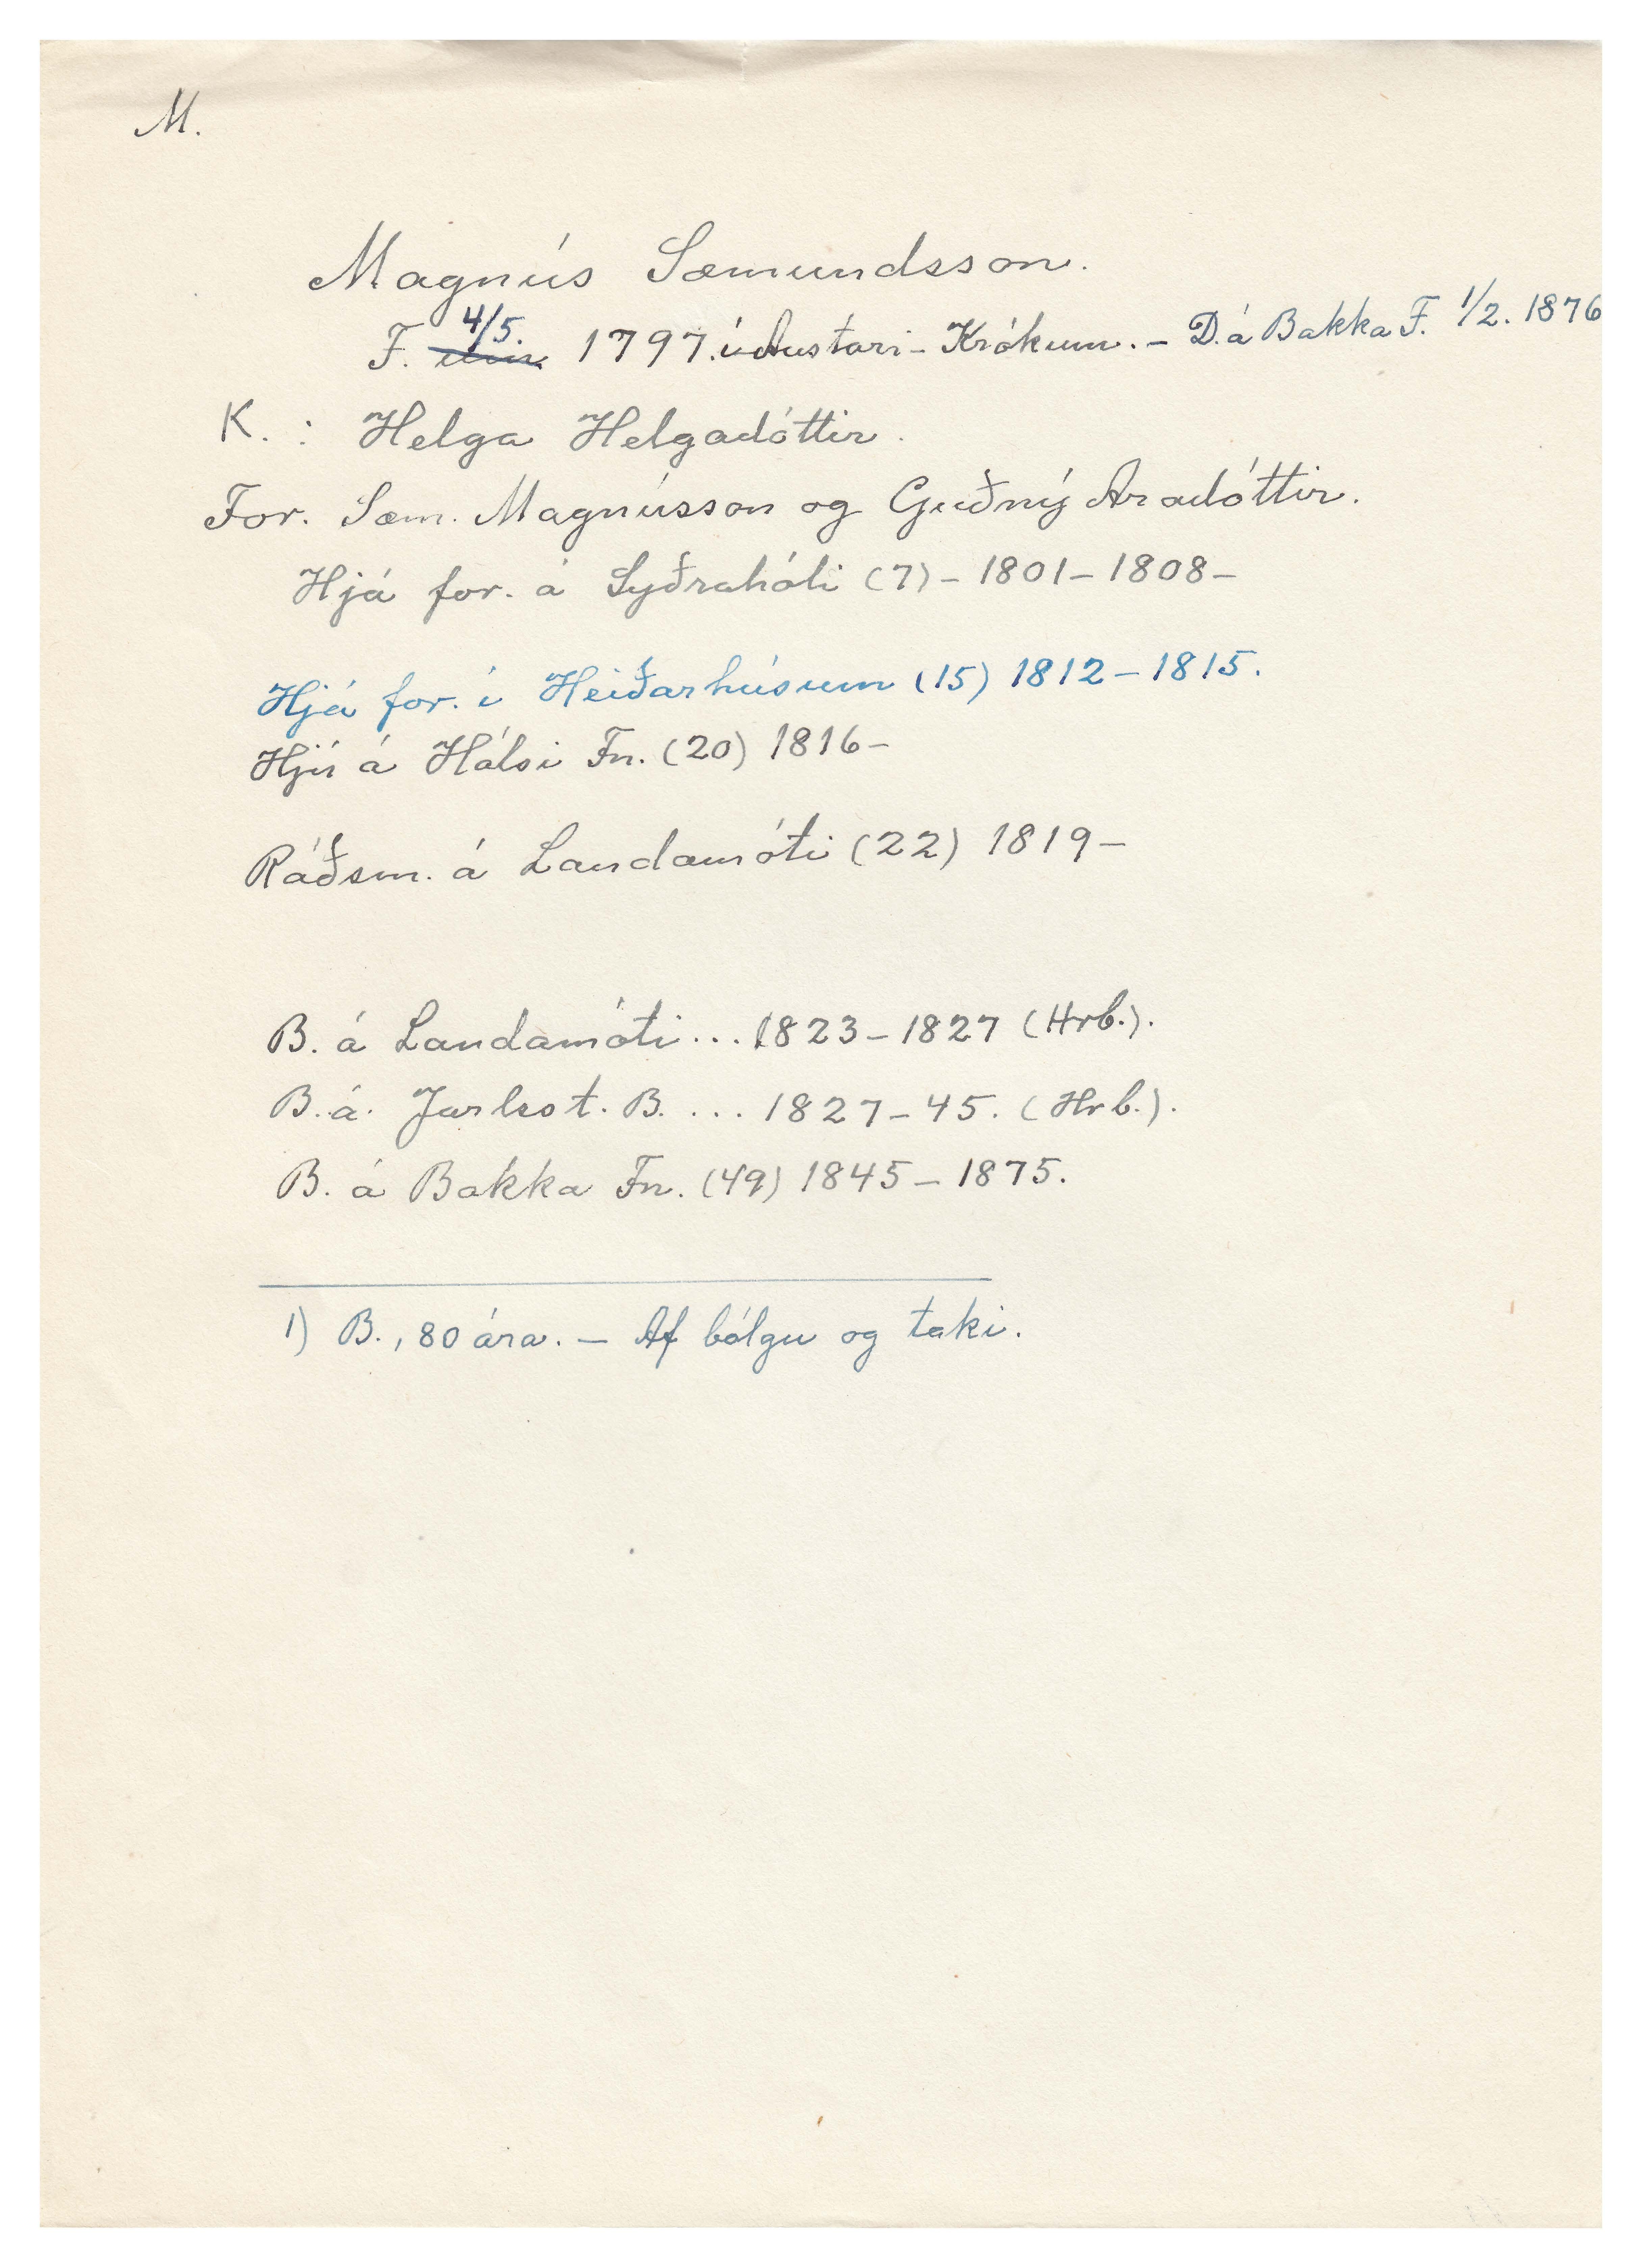 M.
Magnús Sæmundsson.
F. 4/5. 1797. í Austari-Krókum. - D. á Bakka F. 1/2. 1876
K. : Helga Helgadóttir.
For. Sæm. Magnússon og Guðný Aradóttir.
Hjá for. á Syðrahóli (7) - 1801 - 1808 -
Hjá for. í Heiðarhúsum (15) 1812 - 1815.
Hjú á Hálsi Fn. (20) 1816 -
Ráðsm. á Landamóti (22) 1819 -
B. á Landamóti ... 1823 - 1827 (Hrb.).
B. á. Jarlsst. B. ... 1827 - 45. (Hrb.).
B. á Bakka Fn. (49) 1845 - 1875.
1) B., 80 ára. - Af bólgu og taki.